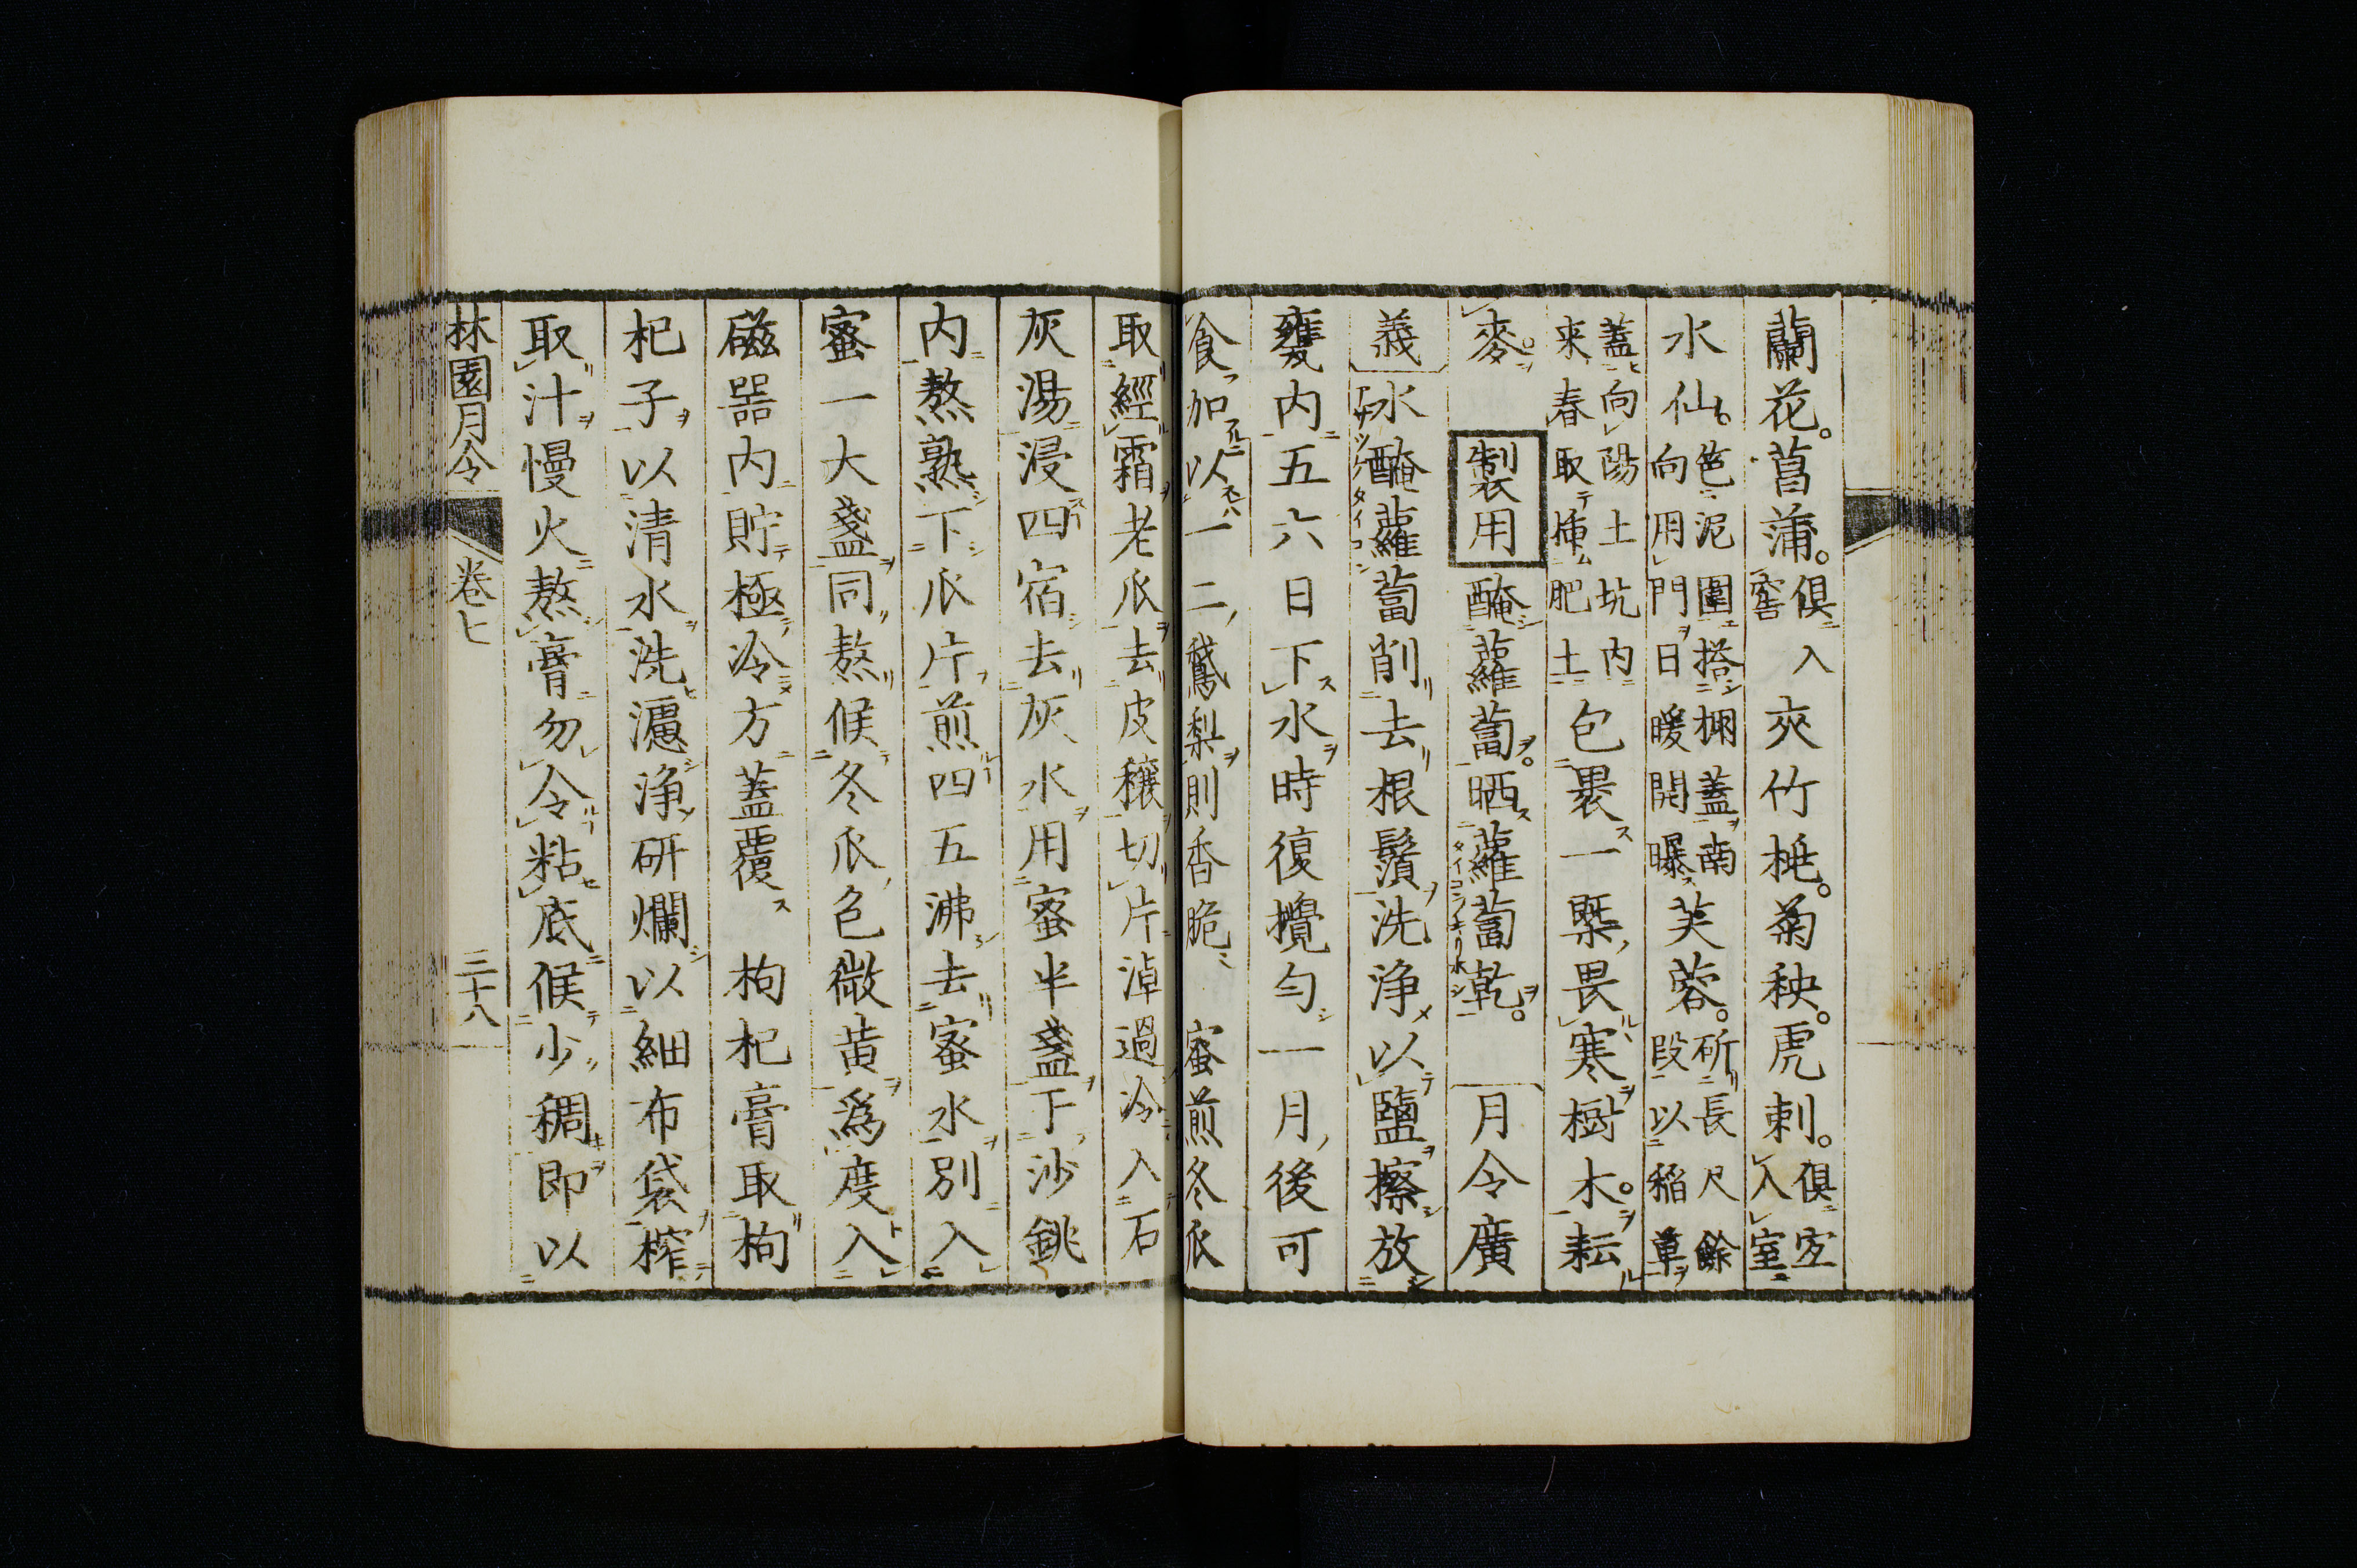 蘭花。菖蒲。俱入窖夾竹桃。菊秧。虎刺。俱宜入室
水仙。色泥圍搭棚蓋南向用門日暖開曝芙蓉。斫長尺餘段以稲草
蓋向陽土坑内来春取挿肥土包裹一槩畏寒樹木。耘
麥。製用醃蘿蔔。晒蘿蔔乾。月令廣
義水醃蘿蔔削去根鬚洗浄以鹽擦放
甕内五六日下水時復攪匀一月後可
食加以一二鵞梨則香脆 蜜煎冬瓜
取經霜老瓜去皮穰切片淖過冷入石
灰湯浸四宿去灰水用蜜半盞下沙銚
内熬熟下瓜片煎四五沸去蜜水別入
蜜一大盞同熬候冬瓜色微黄爲度入
磁噐内貯極冷方蓋覆 枸杞膏取枸
杞子以清水洗濾浄研爛以細布袋榨
取汁慢火熬膏勿令粘底候少稠即以
林園月令 卷七 三十八